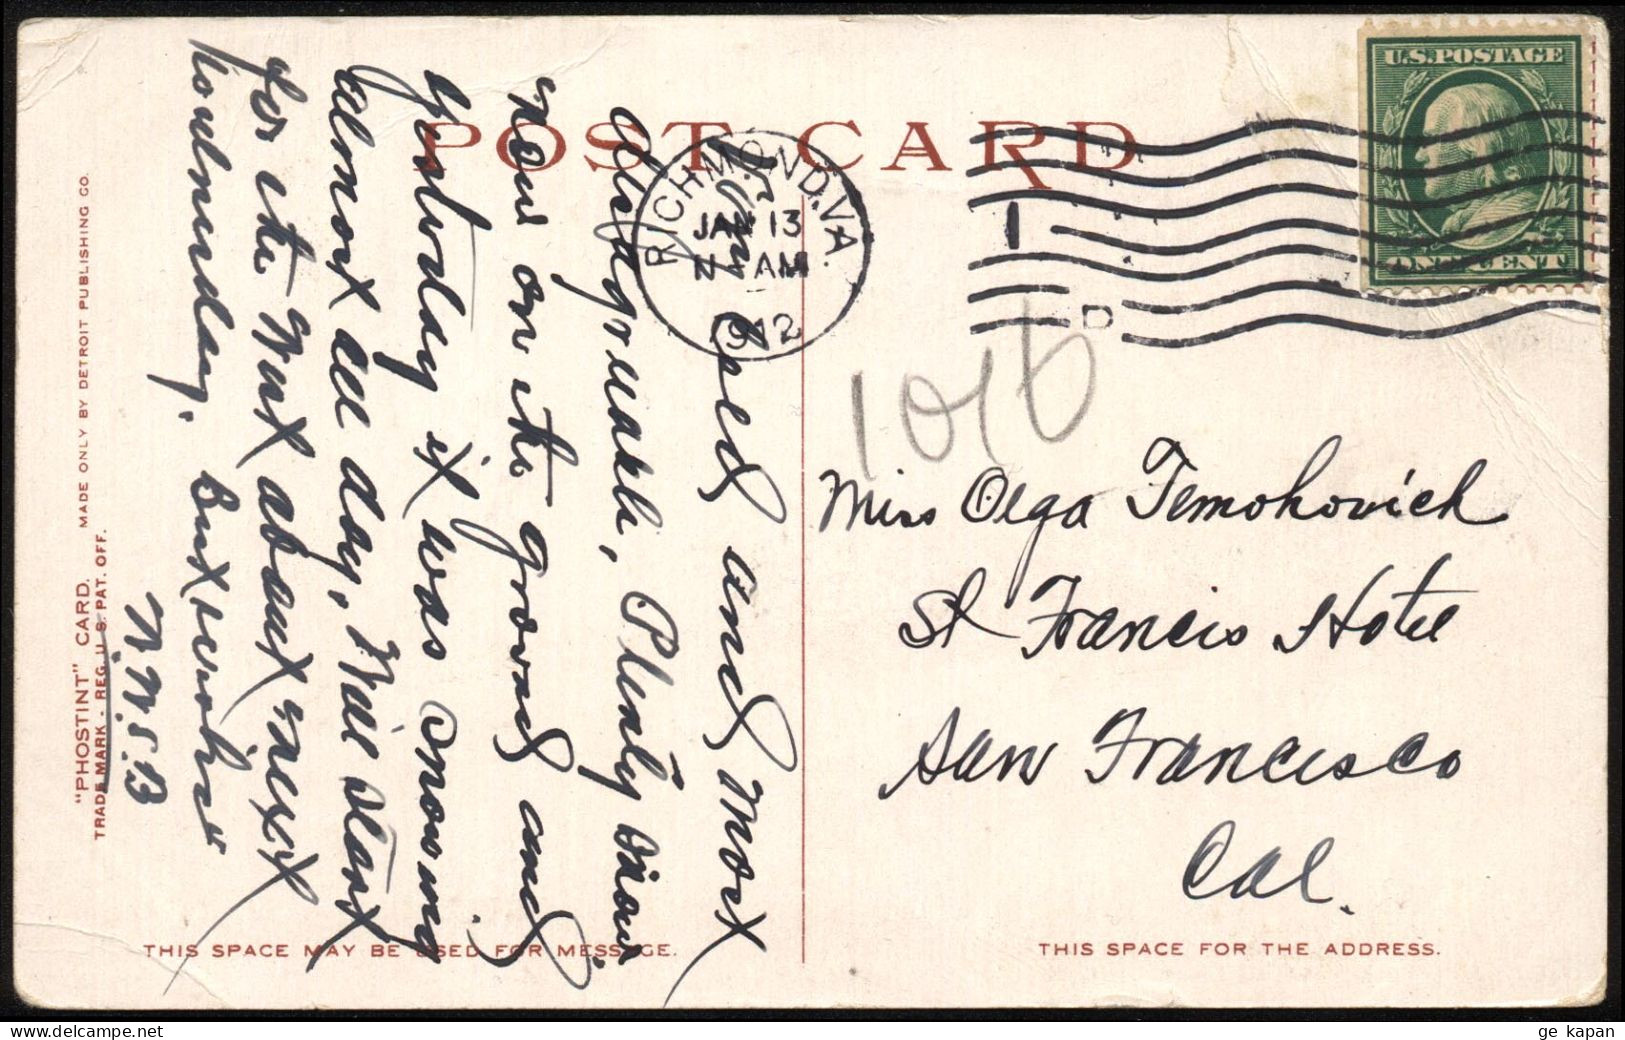 POST CARD
U.S. POSTAGE
ONE CENT
RICHMOND, VA.
JAN 13
AM
1912
1
D
1016
Very cold and most
disagreeable, Plenty snow
now on the ground and
yesterday it was snowing
almost all day, Will start
for the West about next
Wednesday. Best wishes
N.W.S.B
Miss Olga Temohovich
St Francis Hotel
San Francisco
Cal.
"PHOSTINT" CARD. MADE ONLY BY DETROIT PUBLISHING CO.
TRADE MARK - REG. U. S. PAT. OFF.
THIS SPACE MAY BE USED FOR MESSAGE.
THIS SPACE FOR THE ADDRESS.
ge kapan